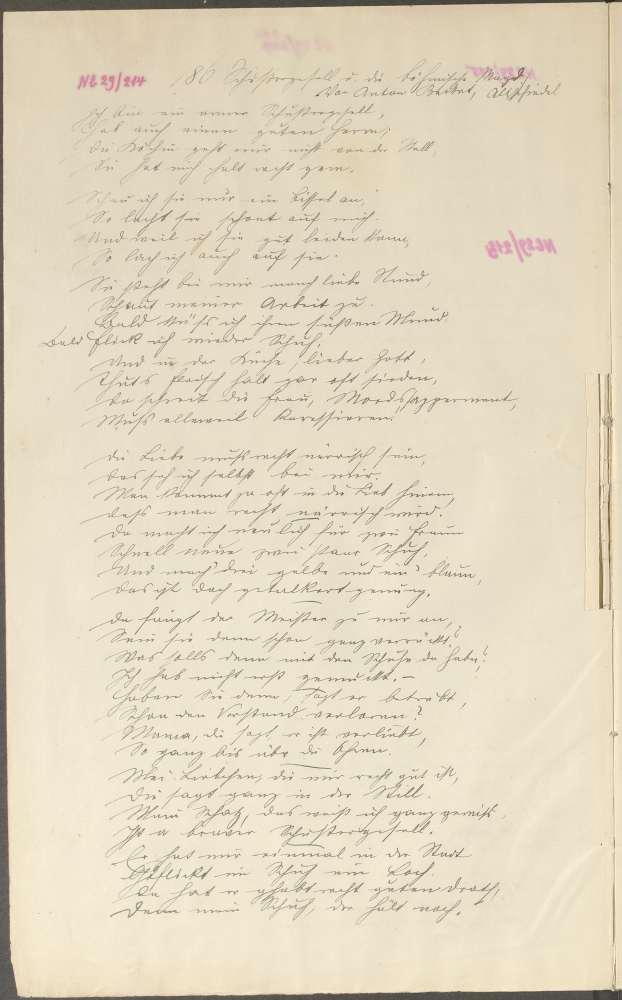 N2 29/214
180 Schustergesell u. die böhmische Magd
Von Anton , Altstiedel
Ich bin ein armer Schustergesell,
Hab auch einen guten Herrn,
Die Köchin geht mir nicht von der Stell,
Sie hat mich halt recht gern.
Schau ich sie nur ein bissel an,
So lacht sie schont auf mich.
Und weil ich sie gut leiden kann,
So lach ich auch auf sie.
Sie steht bei mir manch liebe Stund,
Schaut meiner Arbeit zu.
Bald küss ich ihren süßen Mund,
Bald flick ich wieder Schuh.
Und in der Küche, lieber Gott,
Thuts Fleisch halt gar oft sieden,
Da schreit die Frau, Mordsapperment,
Muss alleweil karessieren!
Die Liebe muss recht närrisch sein,
Das seh ich selbst bei mir.
Man kommt ja oft in die Lieb hinein,
Dass man recht närrisch wird.
Da macht ich neulich für zwei Fraun
Schnell neue zwei Paar Schuh,
Und mach drei gelbe und ein blaun,
Das ist doch getalkert genung.
Da fängt der Meister zu mir an,
Sein sie denn schon ganz verrückt?
Was solls denn mit den Schuhe da habn?
Ich hab nicht erst gemuckt. –
Haben Sie denn, sagt er betrübt,
Schon den Verstand verloren?
Mama, die sagt er ist verliebt,
So ganz bis über die Ohren.
Mei Liebchen, die mir recht gut ist,
Die sagt ganz in der Still.
Mein Schatz, das weiß ich ganz gewiss,
Ist a braver Schustergesell.
Er hat mir einmal in der Stadt
Geflickt im Schuh ein Loch,
Da hat er ghabt recht guten Drath,
Denn mein Schuh, der hält noch.